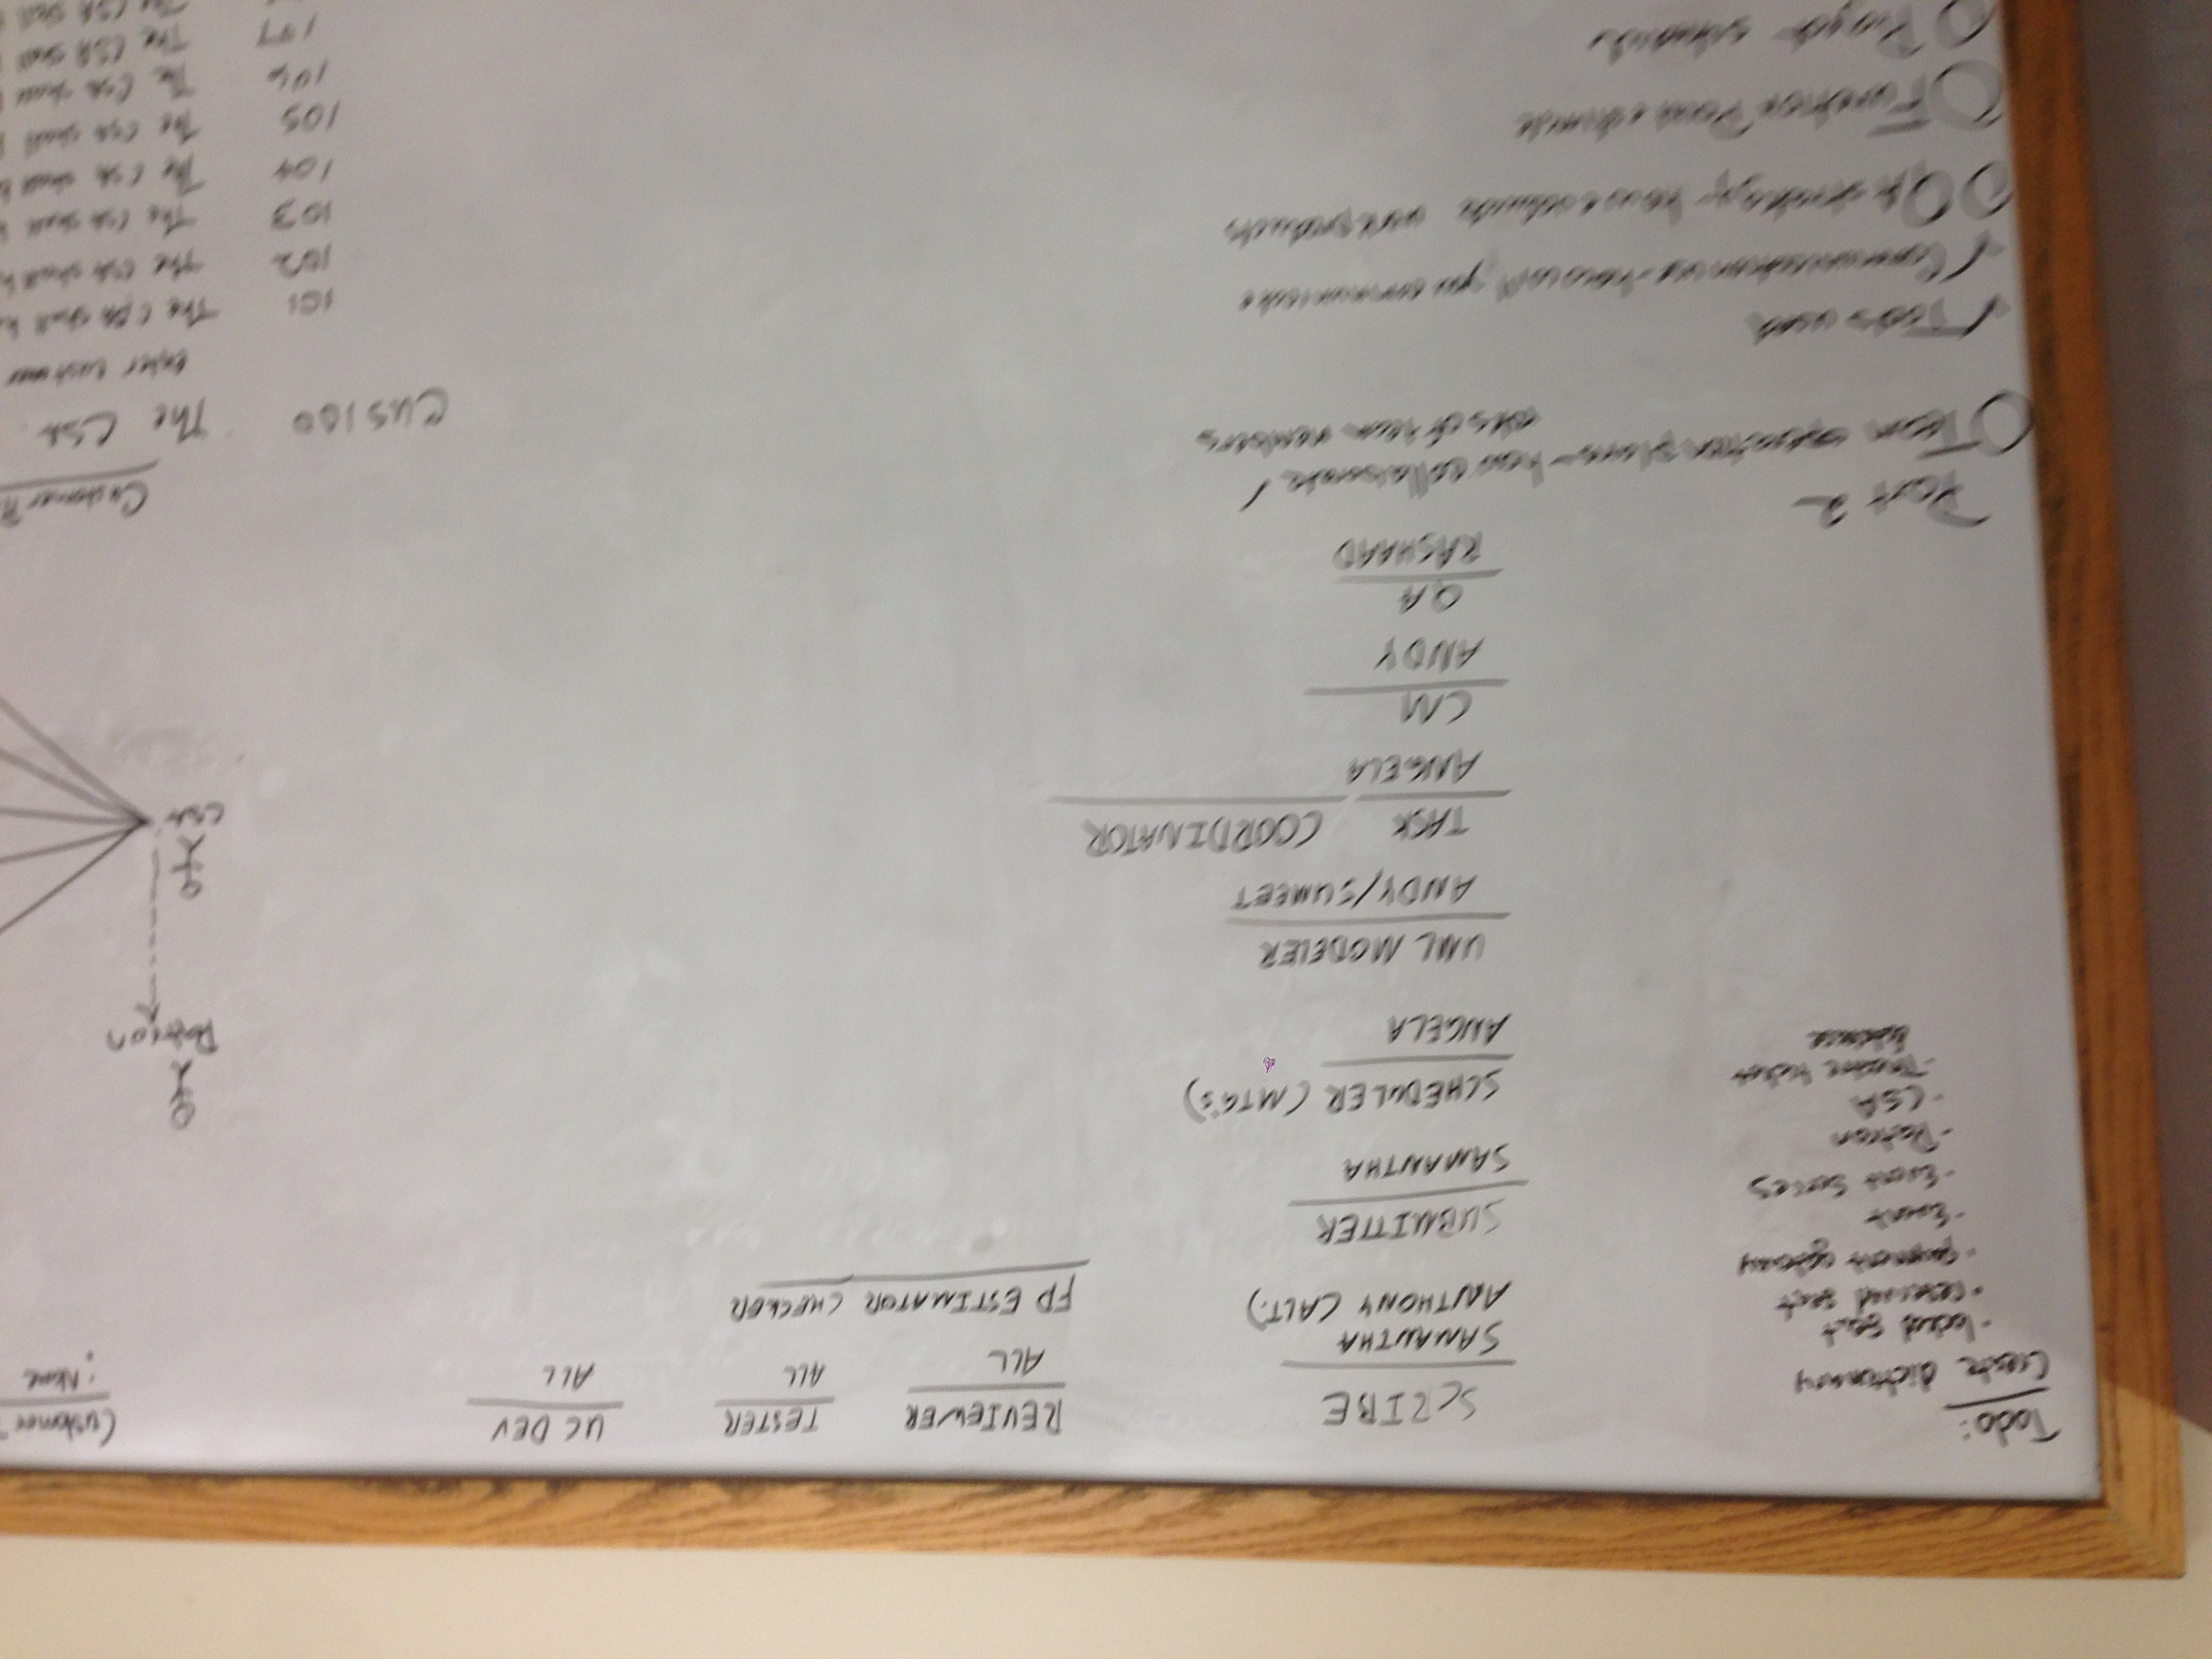 Todo:
Create dictionary
- locked seat
- reserved seat
- payment gateway
- Event
- Event Series
- Patron
- CSA
- Theatre ticket
SCRIBE
SAMANTHA
ANTHONY (ALT.)
SUBMITTER
SAMANTHA
SCHEDULER (MTG'S)
ANGELA
UML MODELER
ANDY/SUMEET
TASK COORDINATOR
ANGELA
CM
ANDY
QA
RASHAAD
REVIEWER
ALL
TESTER
ALL
UC DEV
ALL
FP ESTIMATOR CHECKER
Customer
: Name
Patron
CSA
Part 2
Team operation plans - how collaborate /
of team members
✓ Tools used
✓ - how will you communicate
QA strategy - how evaluate work products
Function Point estimate
Project schedule
Customer
CUS100 The CSA
enter customer
101 The CSA shall
102 The CSA shall
103 The CSA shall
104 The CSA shall
105 The CSA shall
106 The CSA shall
107 The CSA shall
The CSA shall